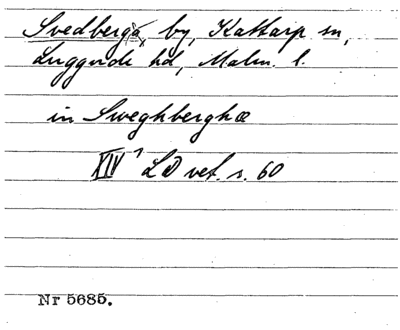 Svedberga, by, Kattarp sn,
Luggude hd, Malm. l.
in Sweghberghæ
XIV¹ LD vet. s. 60
Nr 5685.